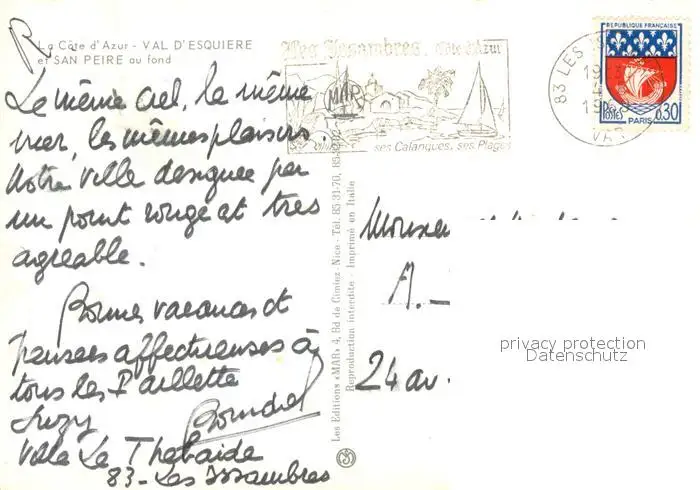 La Côte d'Azur - VAL D'ESQUIERE
et SAN PEIRE au fond
Le même ciel, le même
mer, les mêmes plaisirs.
Notre ville designée par
un point rouge est très
agréable.
Bonnes vacances et
pensées affectueuses à
tous les Paillette
Suzy
Villa La Thebaide
83 - Les Issambres
Les Issambres. Côte d'Azur
MAR
ses Calanques, ses Plages
83 LES
VAR
REPUBLIQUE FRANÇAISE
POSTES
0,30
PARIS
Les Editions «MAR» 4, Bd de Cimiez - Nice - Tél. 85-31-70,
Reproduction interdite - Imprimé en Italie
Monsieur
A. -
24 av.
privacy protection
Datenschutz